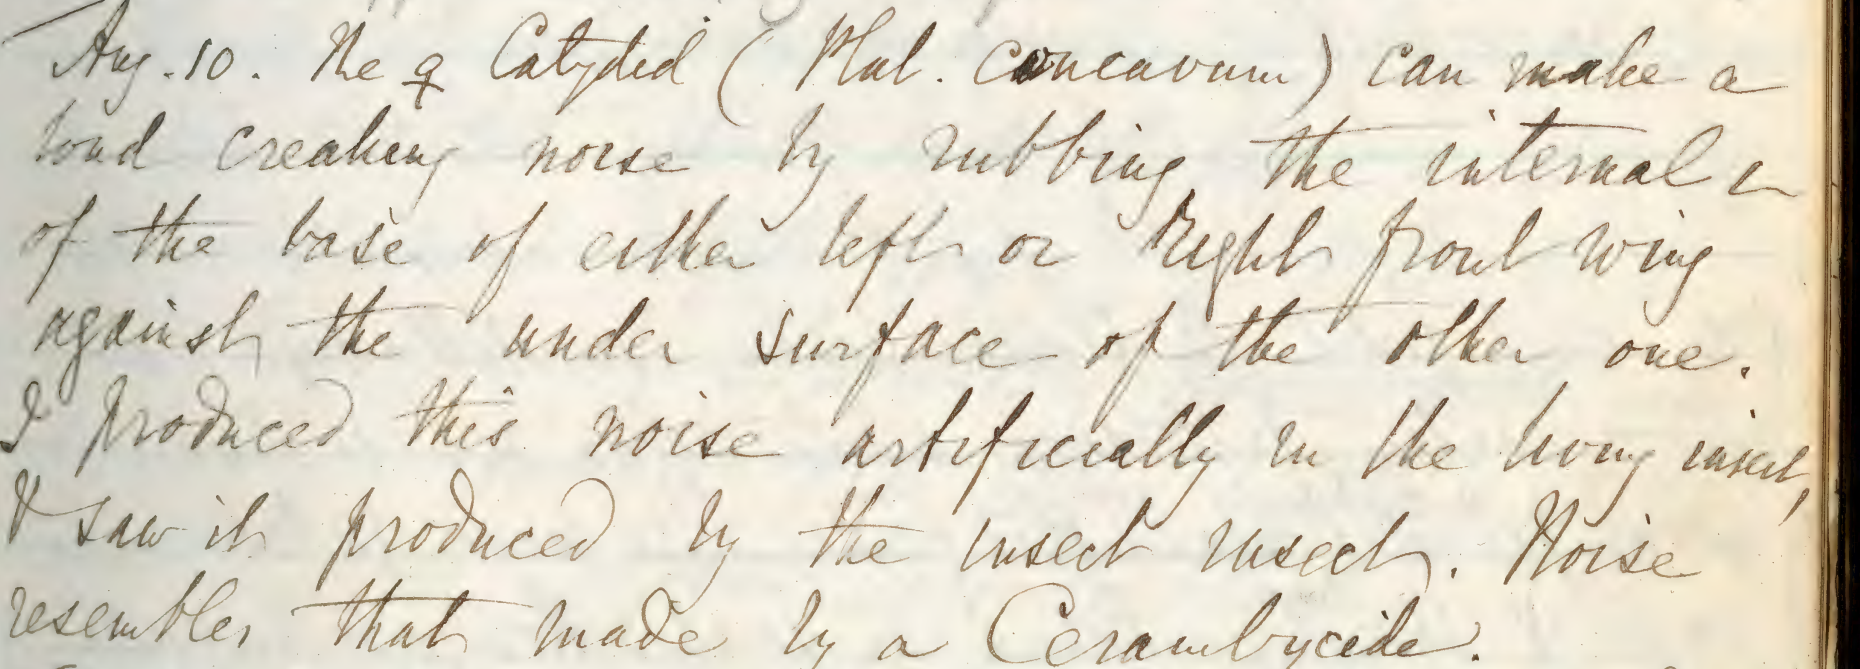 Aug. 10. The ♀ Catydid (Plat. concavum) can make a
loud creaking noise by rubbing the internal
of the base of either left or right front wing
against the under surface of the other one.
I produced this noise artificially in the living insect,
& saw it produced by the insect insect. Noise
resembles that made by a Cerambycide.